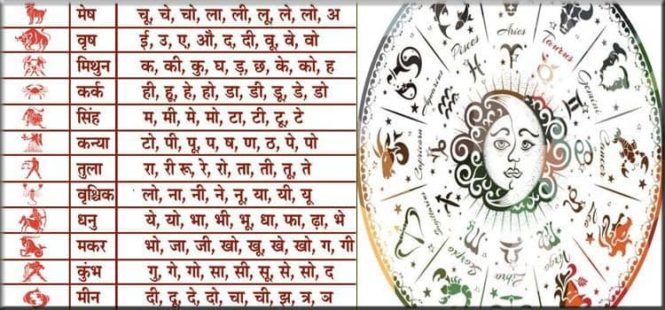 मेष चू, चे, चो, ला, ली, लू, ले, लो, अ
वृष ई, उ, ए, औ, द, दी, वू, वे, वो
मिथुन क, की, कु, घ, ड़, छ, के, को, ह
कर्क ही, हू, हे, हो, डा, डी, डू, डे, डो
सिंह म, मी, मे, मो, टा, टी, टू, टे
कन्या टो, पी, पू, ष, ण, ठ, पे, पो
तुला रा, री रू, रे, रो, ता, ती, तू, ते
वृश्चिक लो, ना, नी, ने, नू, या, यी, यू
धनु ये, यो, भा, भी, भू, धा, फा, ढ़ा, भे
मकर भो, जा, जी, खो, खू, खे, खो, ग, गी
कुंभ गु, गे, गो, सा, सी, सू, से, सो, द
मीन दी, दू, दे, दो, चा, ची, झ, त्र, ञ
Aries
Taurus
Gemini
Cancer
Virgo
Libra
Scorpio
Capricorn
Aquarius
Pisces